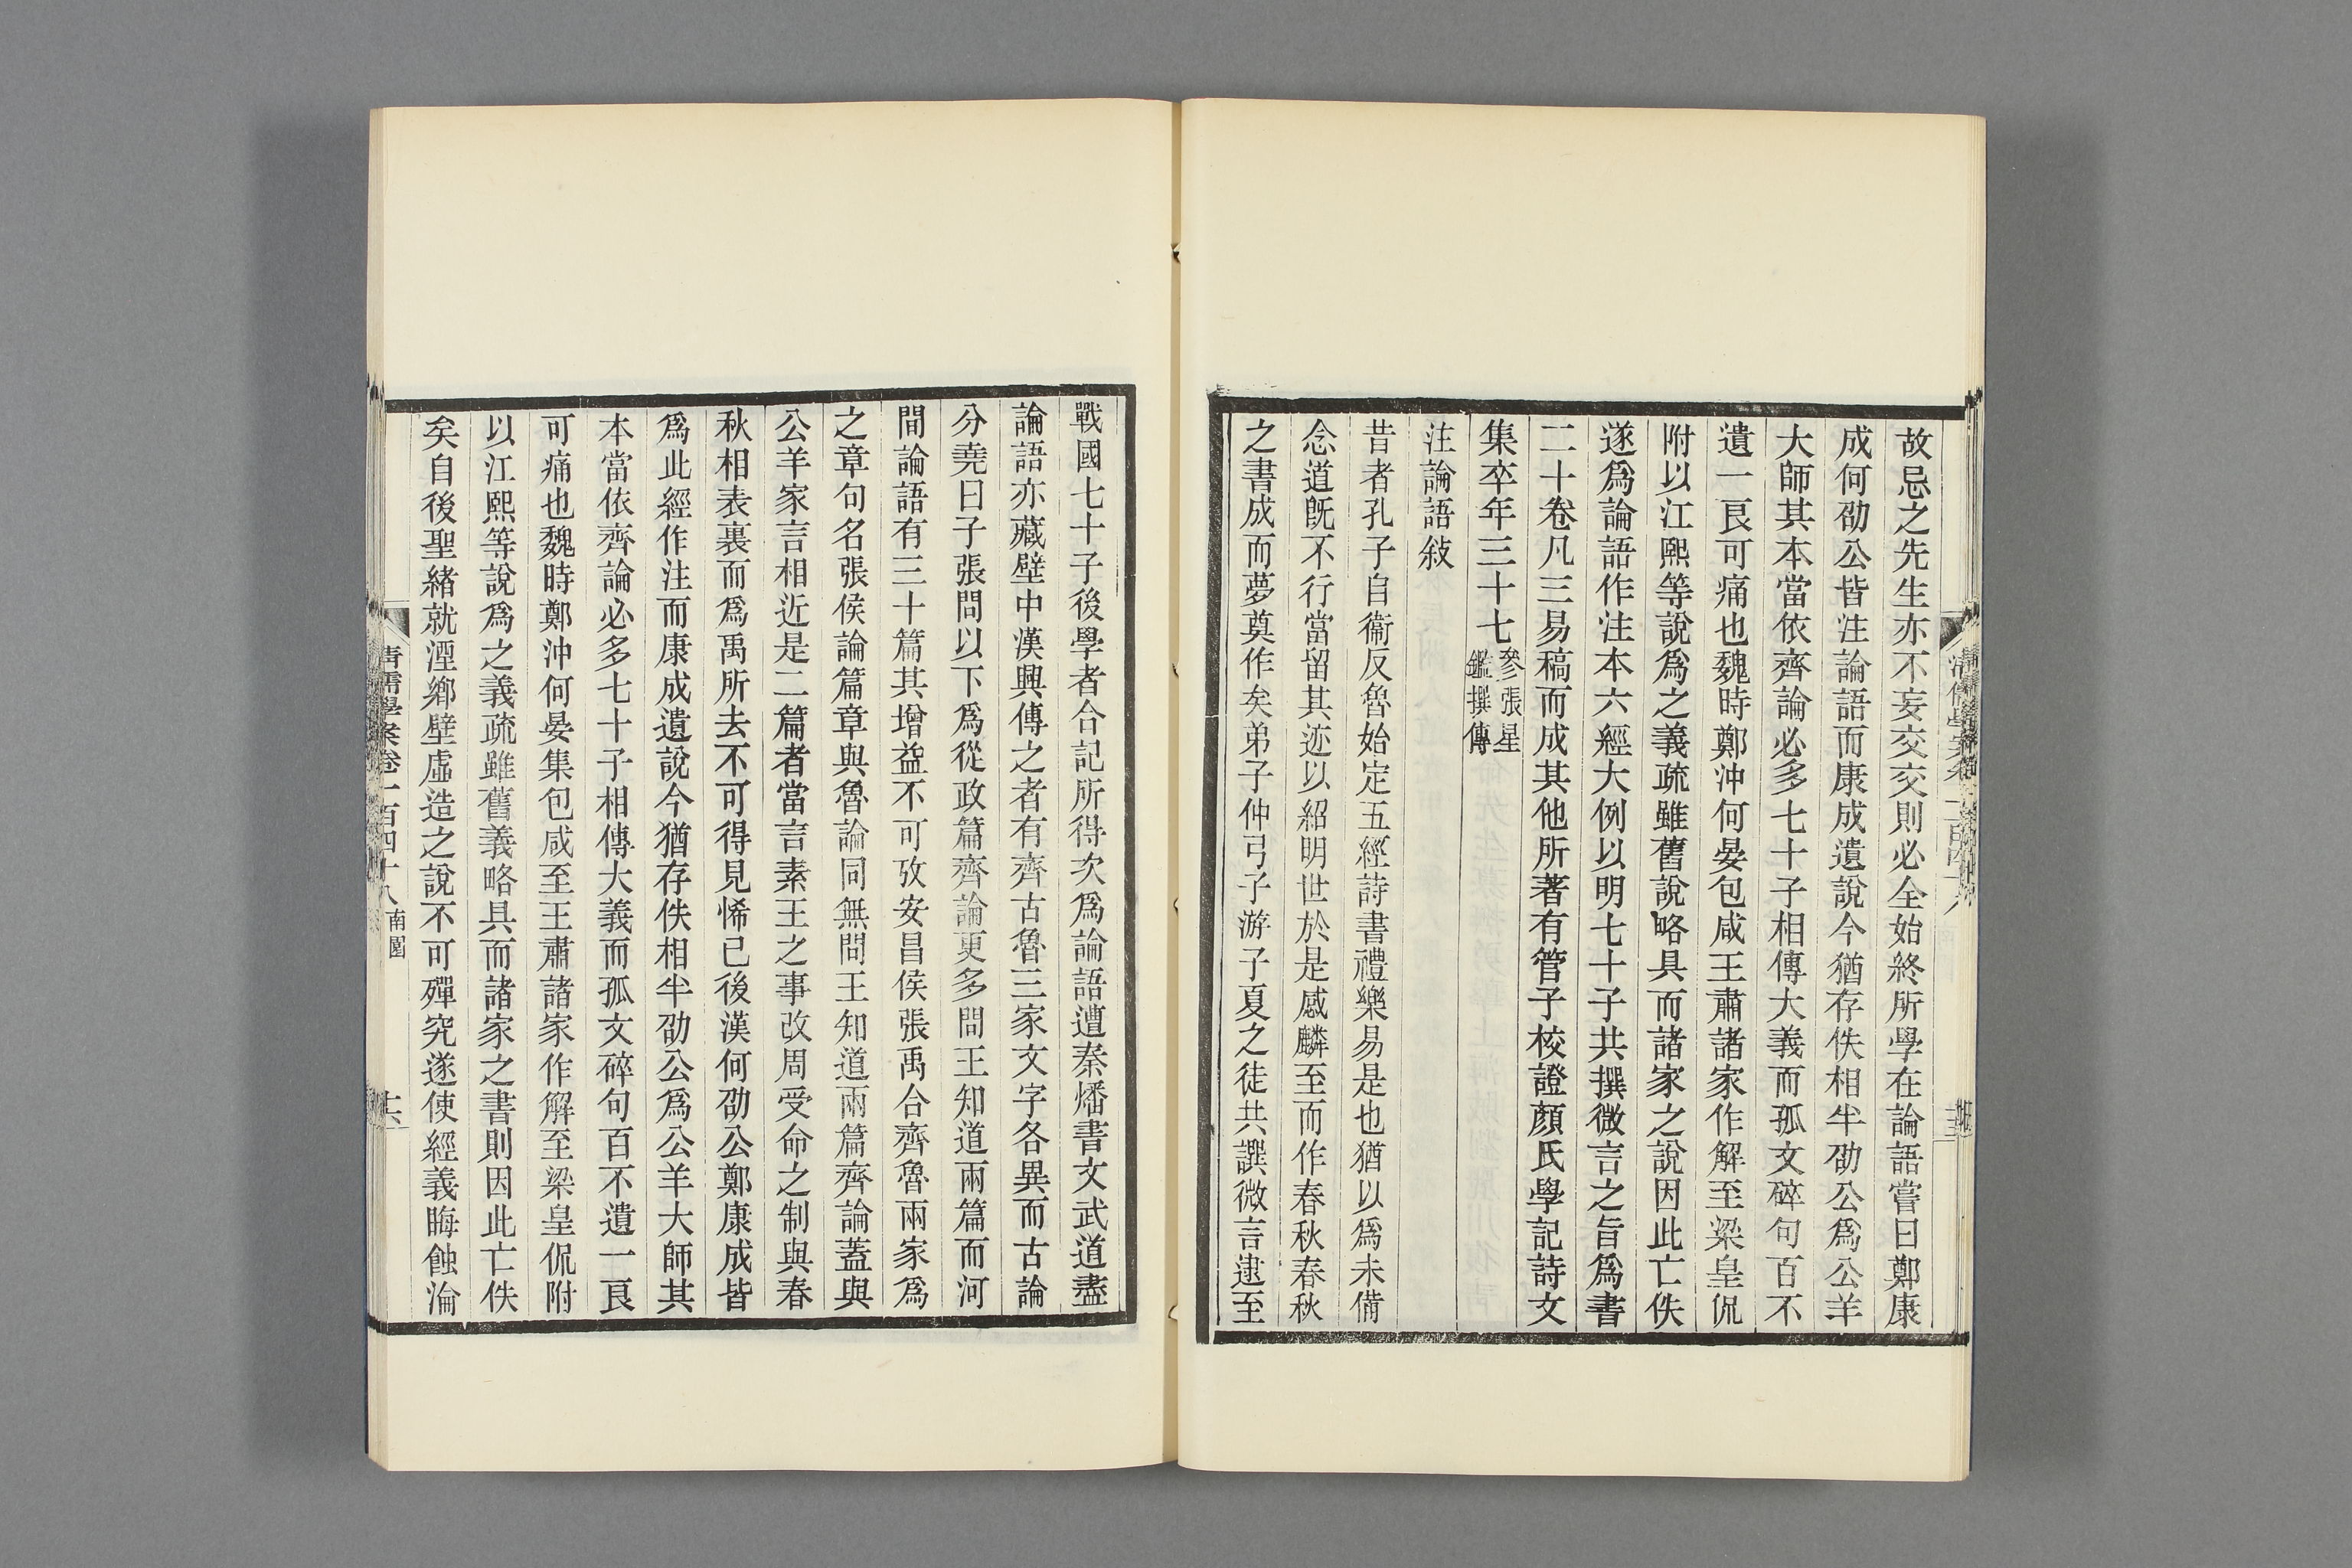 故忌之先生亦不妄交交則必全始終所學在論語嘗曰鄭康
成何劭公皆注論語而康成遺說今猶存佚相半劭公爲公羊
大師其本當依齊論必多七十子相傳大義而孤文碎句百不
遺一良可痛也魏時鄭沖何晏包咸王肅諸家作解至梁皇侃
附以江熙等說爲之義疏雖舊說略具而諸家之說因此亡佚
遂爲論語作注本六經大例以明七十子共撰微言之旨爲書
二十卷凡三易稿而成其他所著有管子校證顏氏學記詩文
集卒年三十七參張星鑑撰傳
注論語敍
昔者孔子自衞反魯始定五經詩書禮樂易是也猶以爲未備
念道旣不行當留其迹以紹明世於是感麟至而作春秋春秋
之書成而夢奠作矣弟子仲弓子游子夏之徒共譔微言逮至
戰國七十子後學者合記所得次爲論語遭秦燔書文武道盡
論語亦藏壁中漢興傳之者有齊古魯三家文字各異而古論
分堯曰子張問以下爲從政篇齊論更多問王知道兩篇而河
間論語有三十篇其增益不可攷安昌侯張禹合齊魯兩家爲
之章句名張侯論篇章與魯論同無問王知道兩篇齊論蓋與
公羊家言相近是二篇者當言素王之事改周受命之制與春
秋相表裏而爲禹所去不可得見悕已後漢何劭公鄭康成皆
爲此經作注而康成遺說今猶存佚相半劭公爲公羊大師其
本當依齊論必多七十子相傳大義而孤文碎句百不遺一良
可痛也魏時鄭沖何晏集包咸至王肅諸家作解至梁皇侃附
以江熙等說爲之義疏雖舊義略具而諸家之書則因此亡佚
矣自後聖緒就湮鄉壁虛造之說不可殫究遂使經義晦蝕淪
清儒學案卷一百四十八 南園
十六